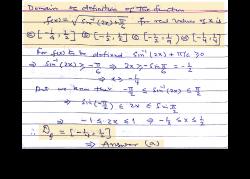 Domain of definition of the function
f(x) = √(sin⁻¹(2x) + π/6) for real values of x is
ⓐ [-1/4, 1/2] ⓑ [-1/2, 1/2] ⓒ (-1/2, 1/9) ⓓ [-1/4, 1/4]
For f(x) to be defined sin⁻¹(2x) + π/6 ≥ 0
⇒ sin⁻¹(2x) ≥ -π/6 ⇒ 2x ≥ -sin π/6 = -1/2
⇒ x ≥ -1/4
But we know that -π/2 ≤ sin⁻¹(2x) ≤ π/2
⇒ sin(-π/2) ≤ 2x ≤ sin π/2
⇒ -1 ≤ 2x ≤ 1 ⇒ -1/2 ≤ x ≤ 1/2
∴ D_f = [-1/4, 1/2]
⇒ Answer (a)